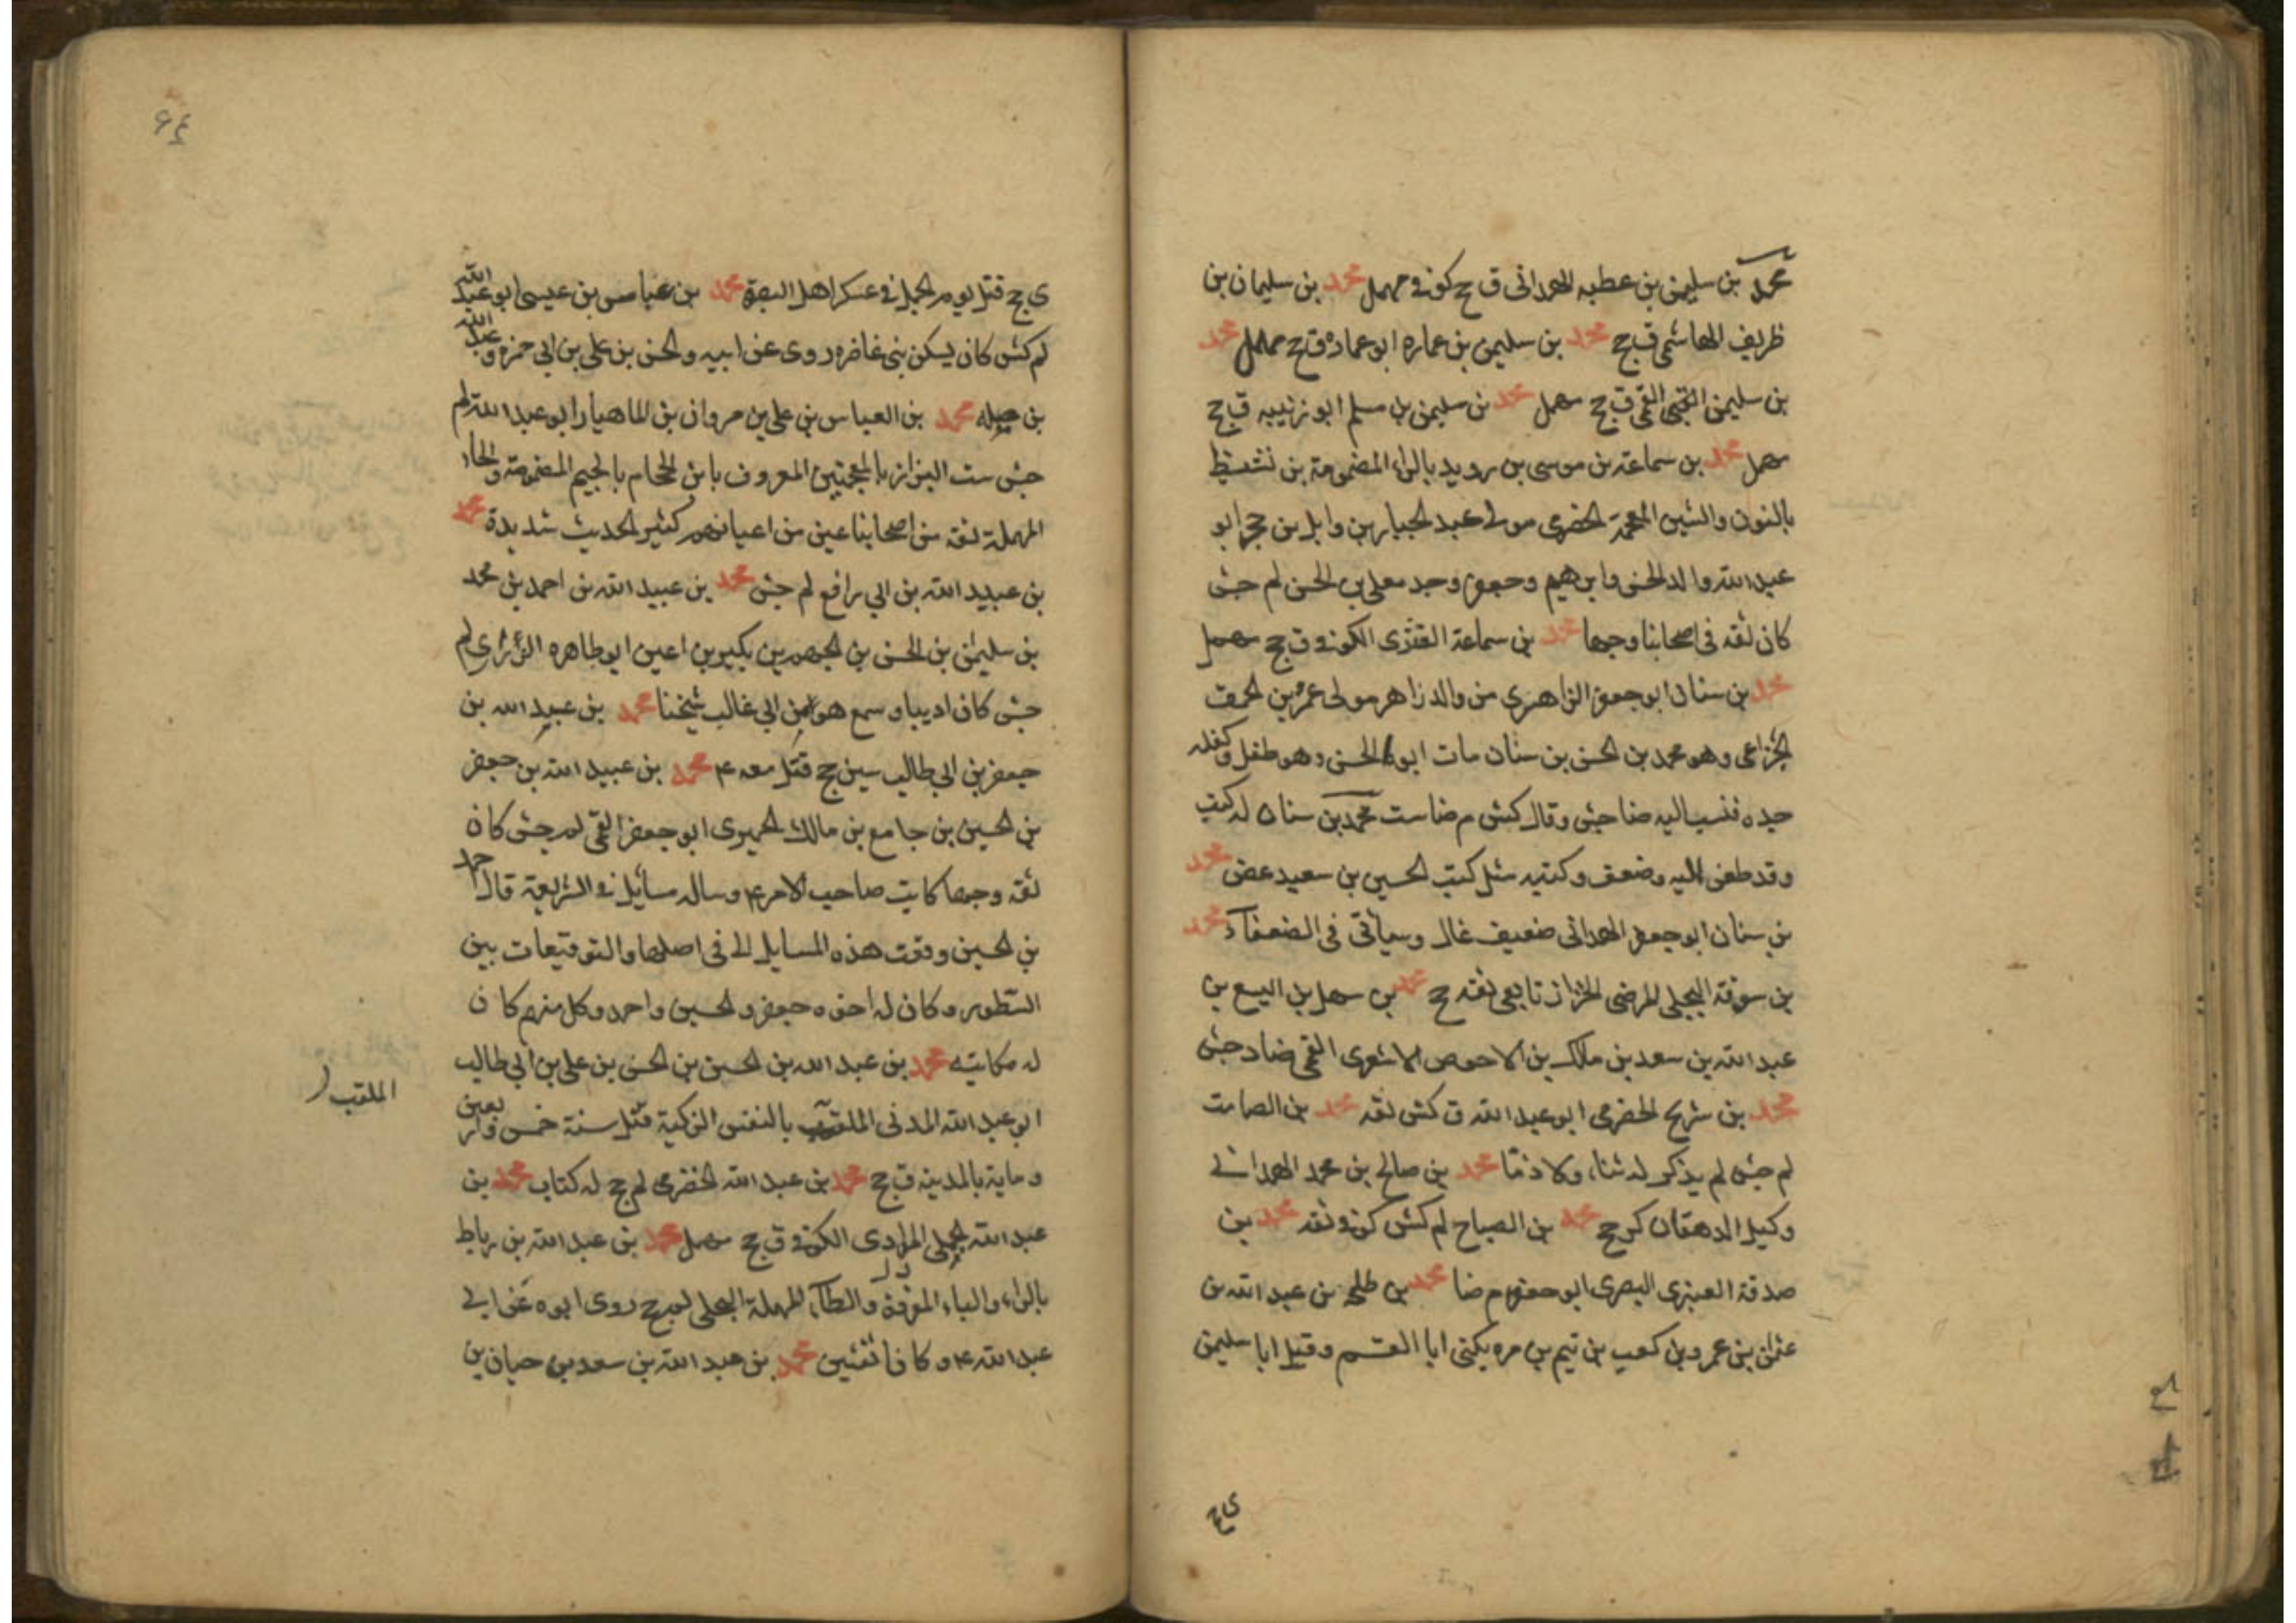 محمد بن سليمن بن عطيه الهمدانى ق ج كوفى مهمل محمد بن سليمان بن
ظريف الهاشمى ق ج محمد بن سليمن بن عماره ابو عماره ق ج مهمل محمد
بن سليمن القمى ق ج مهمل محمد بن سليمن بن مسلم ابو زنيبه ق ج
مهمل محمد بن سماعة بن موسى بن رويد بالراء المضمومة بن نشيط
بالنون والشين المعجمة الحضرمى مولى عبد الجبار بن وايل بن حجر ابو
عبد الله والد الحسن وابرهيم وجعفر وجد معلى بن الحسن لم جش
كان ثقه فى اصحابنا وجها محمد بن سماعة العنزى الكوفى ق ج مهمل
محمد بن سنان ابو جعفر الزاهرى من والد زاهر مولى عمرو بن الحمق
الخزاعى وهو محمد بن الحسن بن سنان مات ابوه الحسن وهو طفل وكفله
جده فنسب اليه ضا جش وقال كش م ضا ست محمد بن سنان له كتب
وقد طعن اليه وضعف وكتبه مثل كتب الحسين بن سعيد عض محمد
بن سنان ابو جعفر الهمدانى ضعيف غال وسيأتى فى الضعفآء محمد
بن سوقة البجلى المرضى الخزاز تابعى ثقه ج محمد بن سهل بن اليسع بن
عبد الله بن سعد بن مالك بن الاحوص الاشعرى القمى ضاد جش
محمد بن شريح الحضرمى ابو عبد الله ق كش ثقه محمد بن الصامت
لم جش لم يذكر له ثناء ولا ذمّا محمد بن صالح بن محمد الهمدانى
وكيل الدهقان كر ج محمد بن الصباح لم كش كوفى ثقه محمد بن
صدقة العنبرى البصرى ابو جعفر م ضا محمد بن طلحة بن عبد الله بن
عثمن بن عمرو بن كعب بن تيم بن مره يكنى ابا القسم وقيل ابا سليمن
ى ج
ى ج قتل يوم الجمل فى عسكر اهل البصرة محمد بن عباس بن عيسى ابو عبد الله
لم كش كان يسكن بنى غاضره روى عن ابيه والحسن بن على بن ابى حمزه وعبد الله
بن جبله محمد بن العباس بن على بن مروان بن الماهيار ابو عبد الله لم
جش ست البزاز بالمعجمتين المعروف بابن الحجام بالجيم المضمومة والحاء
المهملة ثقه من اصحابنا عين من اعيانهم كثير الحديث شديدة محمد
بن عبيد الله بن ابى رافع لم جش محمد بن عبيد الله بن احمد بن محمد
بن سليمن بن الحسن بن الجهم بن بكير بن اعين ابو طاهره الزرارى لم
جش كان اديبا وسمع هو ابن ابى غالب شيخنا محمد بن عبيد الله بن
جعفر بن ابى طالب سين ج قتل معه ع محمد بن عبيد الله بن جعفر
بن الحسين بن جامع بن مالك الحميرى ابو جعفر القمى لم جش كان
ثقه وجها كاتب صاحب الامر ع وساله مسائل فى الشريعة قال احمد
بن الحسين وقعت هذه المسايل الى فى اصلها والتوقيعات بين
السطور وكان له اخوه جعفر والحسين واحمد وكل منهم كان
له مكاتبه محمد بن عبد الله بن الحسن بن الحسن بن على بن ابى طالب
ابو عبد الله المدنى الملقب بالنفس الزكية قتل سنة خمس واربعين
الملقب
وماية بالمدينه ق ج محمد بن عبد الله الحضرمى لم ج له كتاب محمد بن
عبد الله الجملى المرادى الكوفى ق ج مهمل محمد بن عبد الله بن رباط
بالراء والباء الموحدة والطآء المهملة البجلى لم ج روى ابوه عن ابى
عبد الله ع وكانا ثقتين محمد بن عبد الله بن سعد بن حيان بن